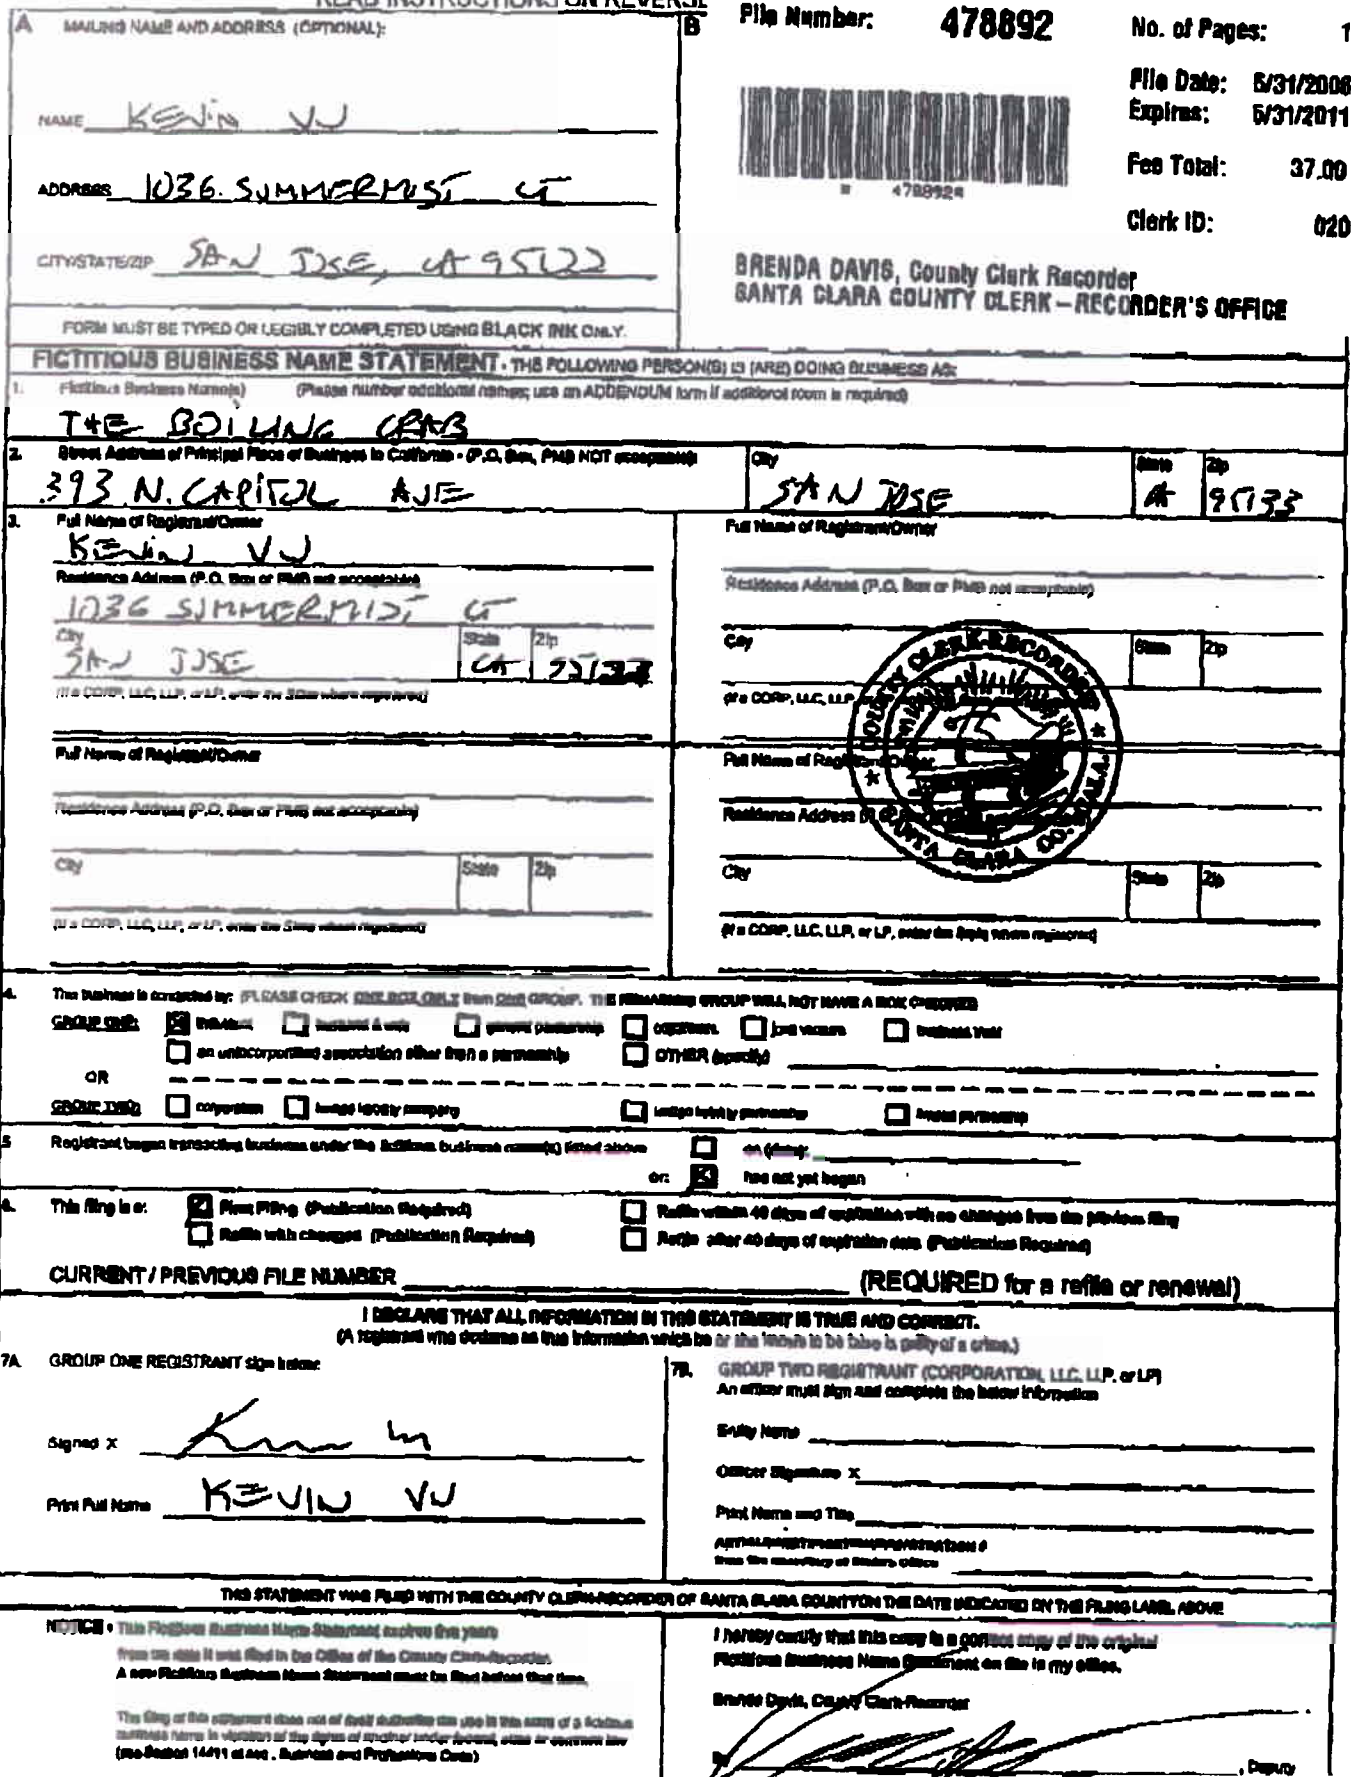 READ INSTRUCTIONS ON REVERSE
A MAILING NAME AND ADDRESS (OPTIONAL):
NAME KEVIN VU
ADDRESS 1036 SUMMERMIST CT
CITY/STATE/ZIP SAN JOSE, CA 95122
FORM MUST BE TYPED OR LEGIBLY COMPLETED USING BLACK INK ONLY.
B File Number: 478892 No. of Pages: 1
File Date: 5/31/2006
Expires: 5/31/2011
4788924
Fee Total: 37.00
Clerk ID: 020
BRENDA DAVIS, County Clerk Recorder
SANTA CLARA COUNTY CLERK – RECORDER'S OFFICE
FICTITIOUS BUSINESS NAME STATEMENT - THE FOLLOWING PERSON(S) IS (ARE) DOING BUSINESS AS:
1. Fictitious Business Name(s) (Please number additional names; use an ADDENDUM form if additional room is required)
THE BOILING CRAB
2. Street Address of Principal Place of Business in California - (P.O. Box, PMB NOT acceptable) City State Zip
393 N. CAPITOL AVE SAN JOSE CA 95133
3. Full Name of Registrant/Owner Full Name of Registrant/Owner
KEVIN VU
Residence Address (P.O. Box or PMB not acceptable) Residence Address (P.O. Box or PMB not acceptable)
1036 SUMMERMIST CT
City State Zip City State Zip
SAN JOSE CA
(If a CORP, LLC, LLP, or LP, enter the State where registered) (If a CORP, LLC, LLP
COUNTY CLERK-RECORDER
SANTA CLARA CO. CALA.
Full Name of Registrant/Owner Full Name of Registrant/Owner
Residence Address (P.O. Box or PMB not acceptable) Residence Address
City State Zip City State Zip
(If a CORP, LLC, LLP, or LP, enter the State where registered) (If a CORP, LLC, LLP, or LP, enter the State where registered)
4. This business is conducted by: (PLEASE CHECK ONE BOX ONLY from ONE GROUP. THE REMAINING GROUP WILL NOT HAVE A BOX CHECKED
GROUP ONE: individual husband & wife general partnership copartners joint venture business trust
an unincorporated association other than a partnership OTHER (specify)
OR
GROUP TWO: corporation limited liability company limited liability partnership limited partnership
5 Registrant began transacting business under the fictitious business name(s) listed above on (date):
or: has not yet began
6. This filing is a: First Filing (Publication Required) Refile within 40 days of expiration with no changes from the previous filing
Refile with changes (Publication Required) Refile after 40 days of expiration date (Publication Required)
CURRENT / PREVIOUS FILE NUMBER (REQUIRED for a refile or renewal)
I DECLARE THAT ALL INFORMATION IN THIS STATEMENT IS TRUE AND CORRECT.
(A registrant who declares as true information which he or she knows to be false is guilty of a crime.)
7A. GROUP ONE REGISTRANT sign below:
Signed X
Print Full Name KEVIN VU
7B. GROUP TWO REGISTRANT (CORPORATION, LLC, LLP, or LP)
An officer must sign and complete the below information
Entity Name
Officer Signature X
Print Name and Title
from the secretary of State's Office
THIS STATEMENT WAS FILED WITH THE COUNTY CLERK-RECORDER OF SANTA CLARA COUNTY ON THE DATE INDICATED ON THE FILING LABEL ABOVE
NOTICE - This Fictitious Business Name Statement expires five years
from the date it was filed in the Office of the County Clerk-Recorder.
A new Fictitious Business Name Statement must be filed before that time.
The filing of this statement does not of itself authorize the use in this state of a fictitious
business name in violation of the rights of another under federal, state or common law
(see Section 14411 et seq., Business and Professions Code)
I hereby certify that this copy is a correct copy of the original
Fictitious Business Name Statement on file in my office.
Brenda Davis, County Clerk-Recorder
By , Deputy